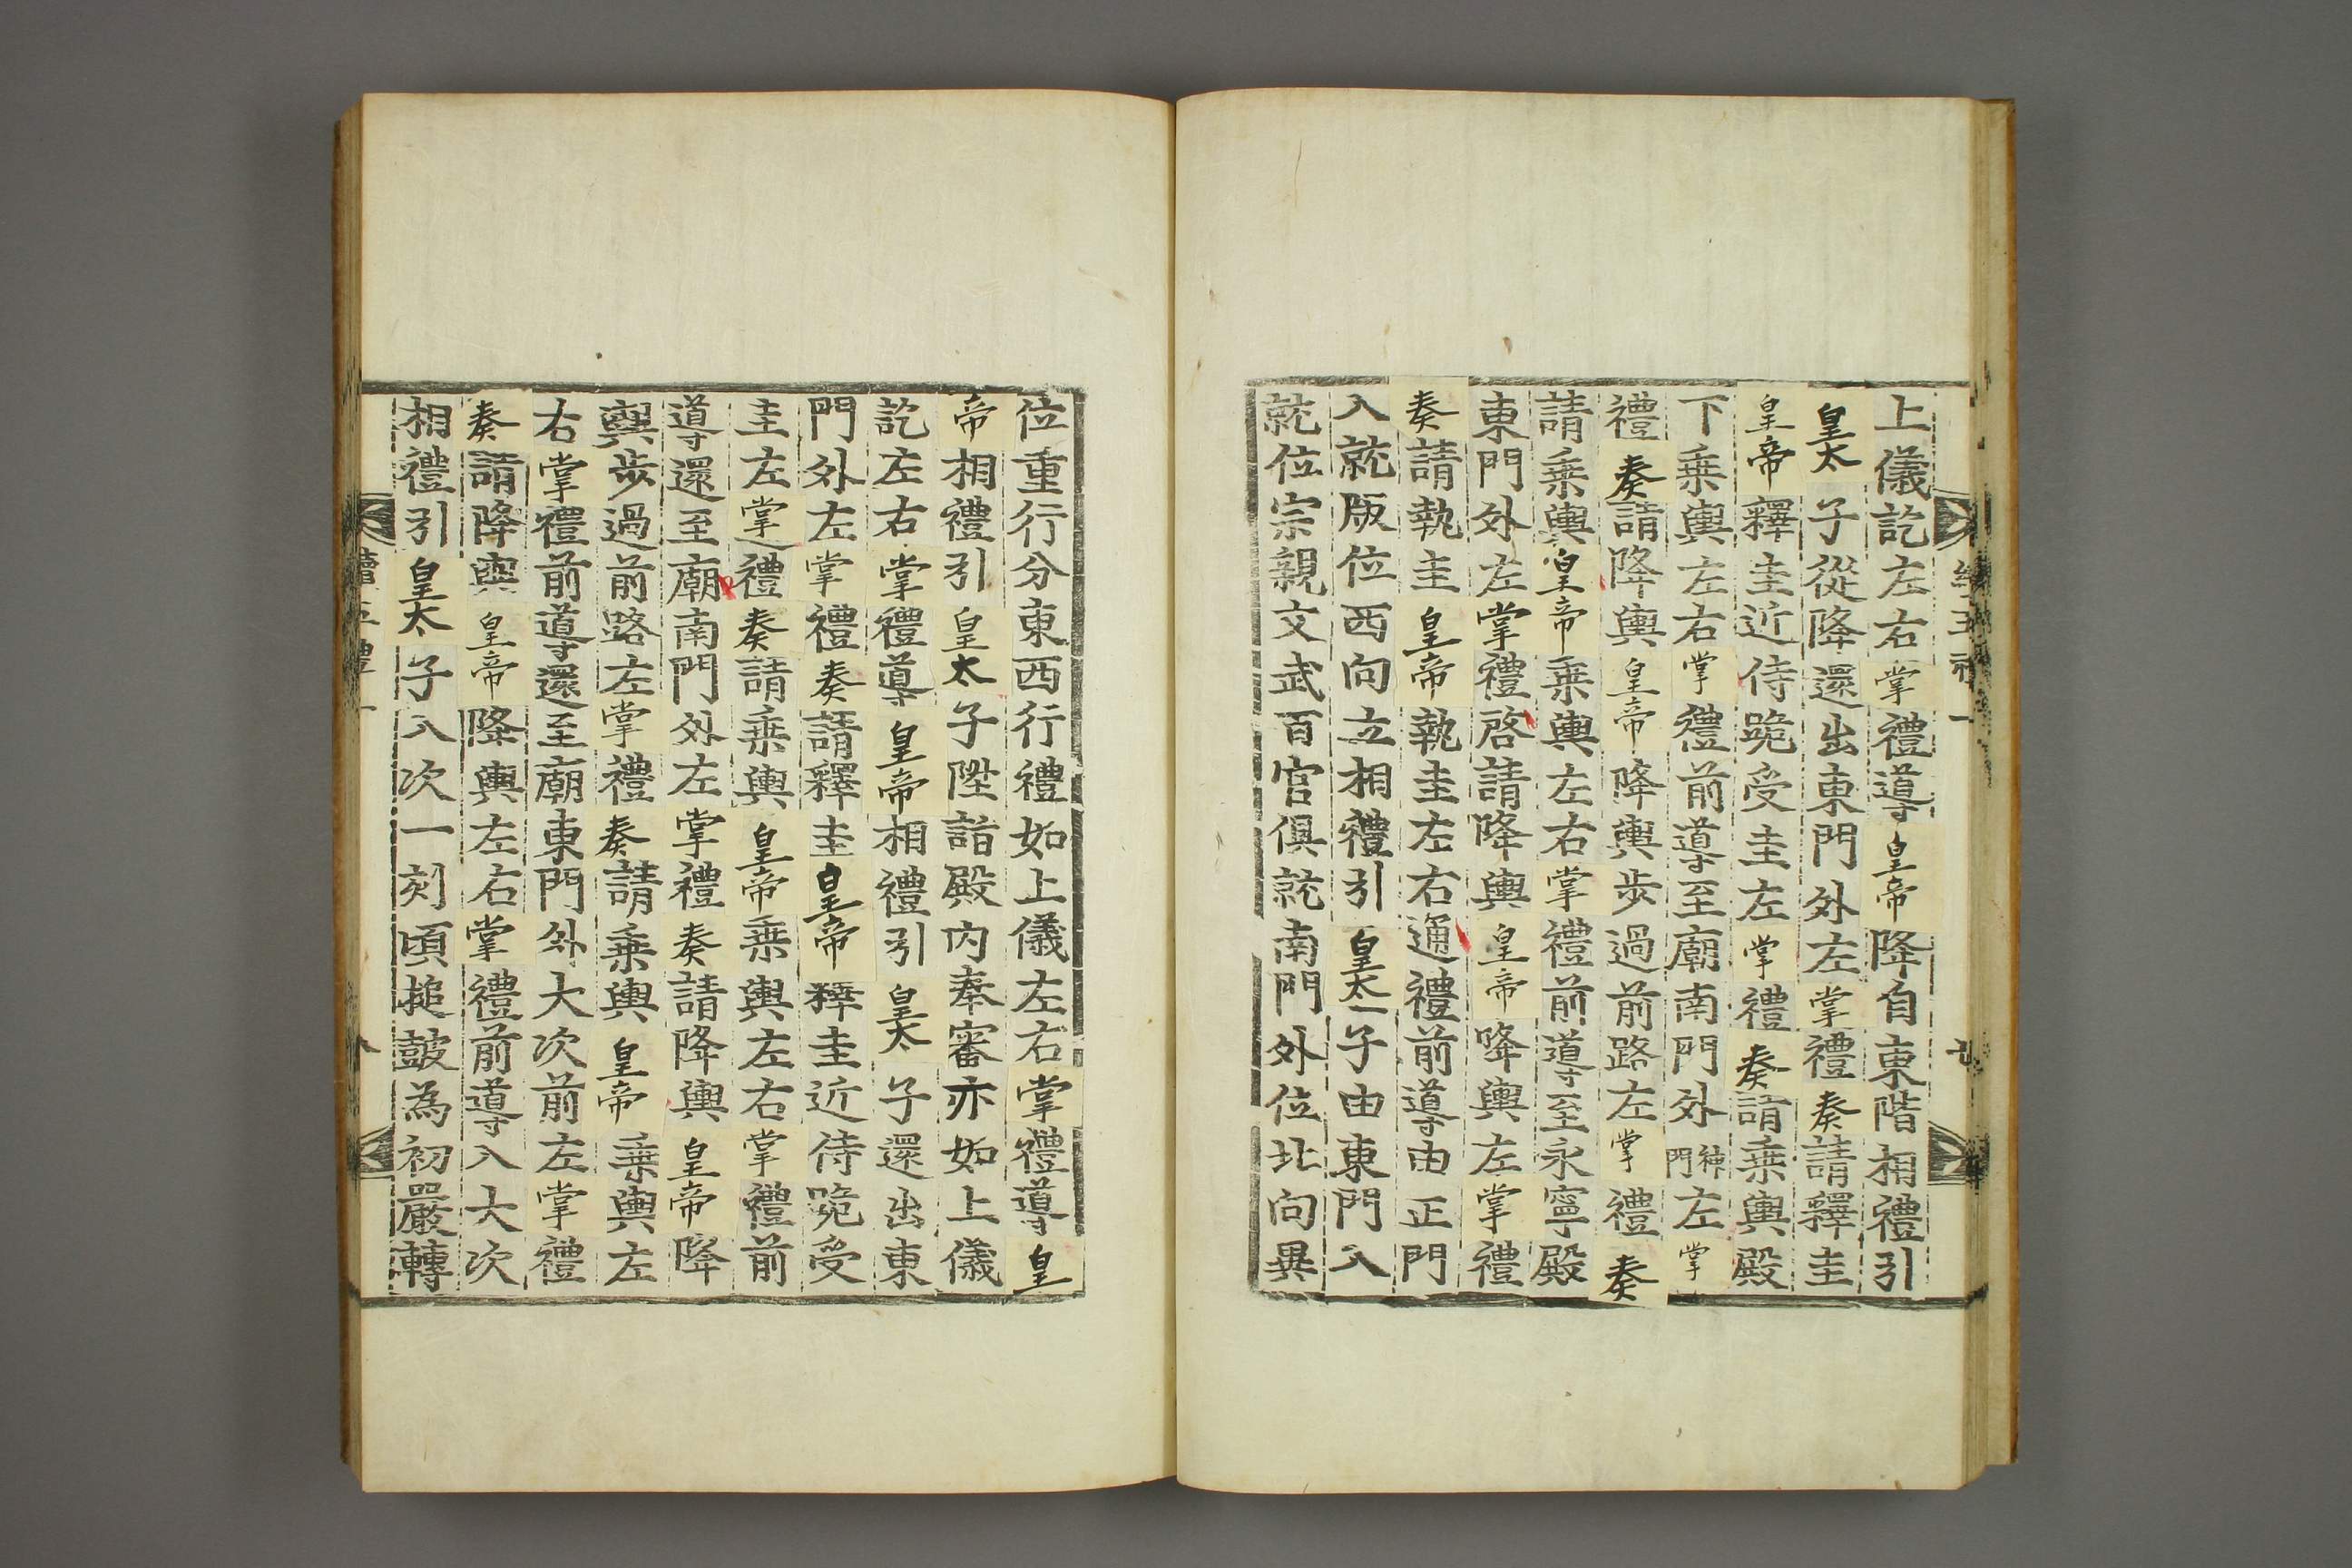 上儀訖左右掌禮導皇帝降自東階相禮引
皇太子從降還出東門外左掌禮奏請釋圭
皇帝釋圭近侍跪受圭左掌禮奏請乗輿殿
下乗輿左右掌禮前導至廟南門外神門左掌
禮奏請降輿皇帝降輿步過前路左掌禮奏
請乗輿皇帝乗輿左右掌禮前導至永寧殿
東門外左掌禮啓請降輿皇帝降輿左掌禮
奏請執圭皇帝執圭左右通禮前導由正門
入就版位西向立相禮引皇太子由東門入
就位宗親文武百官俱就南門外位北向異
位重行分東西行禮如上儀左右掌禮導皇
帝相禮引皇太子陞詣殿内奉審亦如上儀
訖左右掌禮導皇帝相禮引皇太子還出東
門外左掌禮奏請釋圭皇帝釋圭近侍跪受
圭左掌禮奏請乗輿皇帝乗輿左右掌禮前
導還至廟南門外左掌禮奏請降輿皇帝降
輿步過前路左掌禮奏請乗輿皇帝乗輿左
右掌禮前導還至廟東門外大次前左掌禮
奏請降輿皇帝降輿左右掌禮前導入大次
相禮引皇太子入次一刻頃搥鼓為初嚴轉